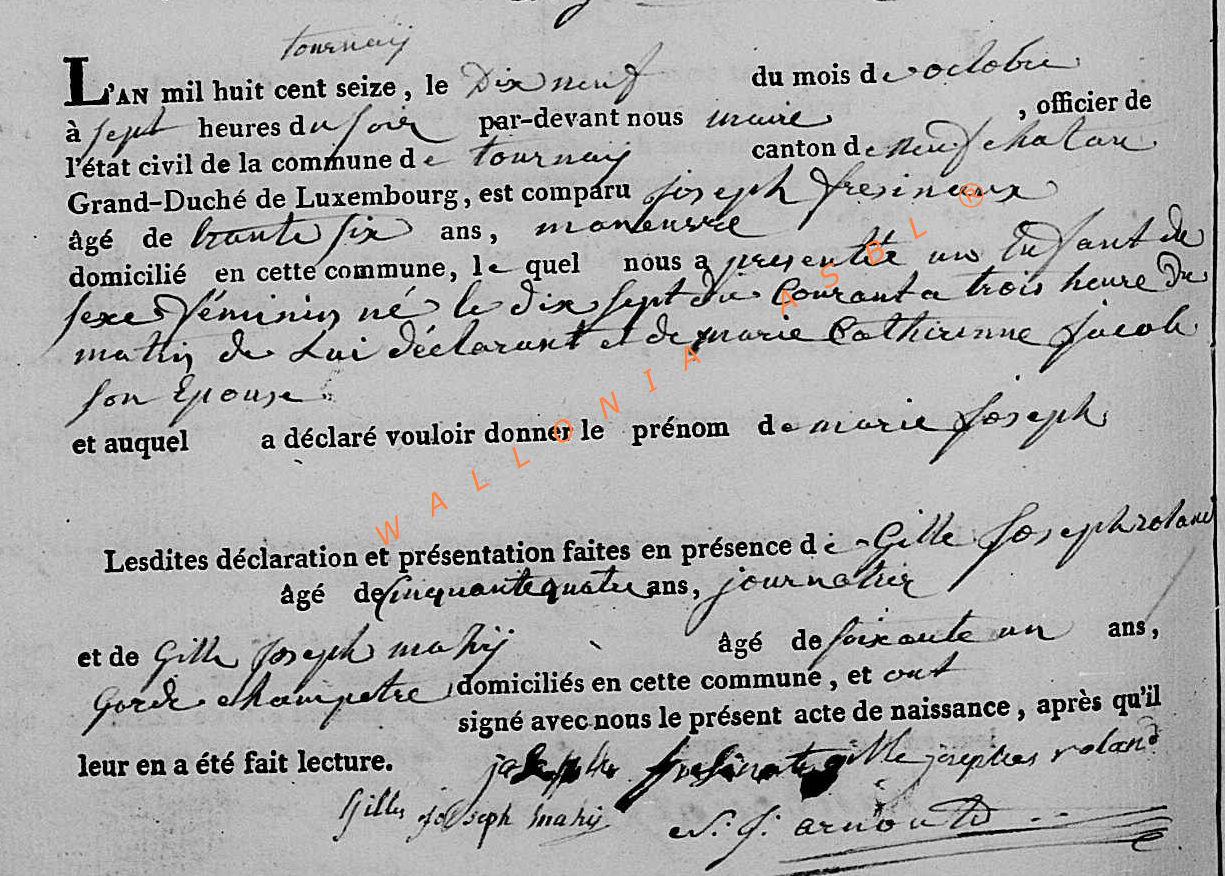 tournaÿ
L'AN mil huit cent seize, le Dix neuf du mois de octobre
à sept heures du soir par-devant nous maire , officier de
l'état civil de la commune de tournaÿ canton de neufchatau
Grand-Duché de Luxembourg, est comparu joseph fresineaux
âgé de trante six ans, maneuvre
domicilié en cette commune, le quel nous a presenté un Enfant de
sexe féminin né le dix sept du Courant a trois heure Du
matin de Lui déclarant et de marie Catherinne Jacob
son Epouse
et auquel a déclaré vouloir donner le prénom de marie Joseph
Lesdites déclaration et présentation faites en présence de Gille Joseph roland
âgé de cinquante quatre ans, journalier
et de Gille Joseph mahÿ âgé de soixante un ans,
Garde champetre domiciliés en cette commune, et ont
signé avec nous le présent acte de naissance, après qu'il
leur en a été fait lecture.
joseph gille josephes roland
Gilles joseph mahÿ N. J. arnould
WALLONIA ASBL ®